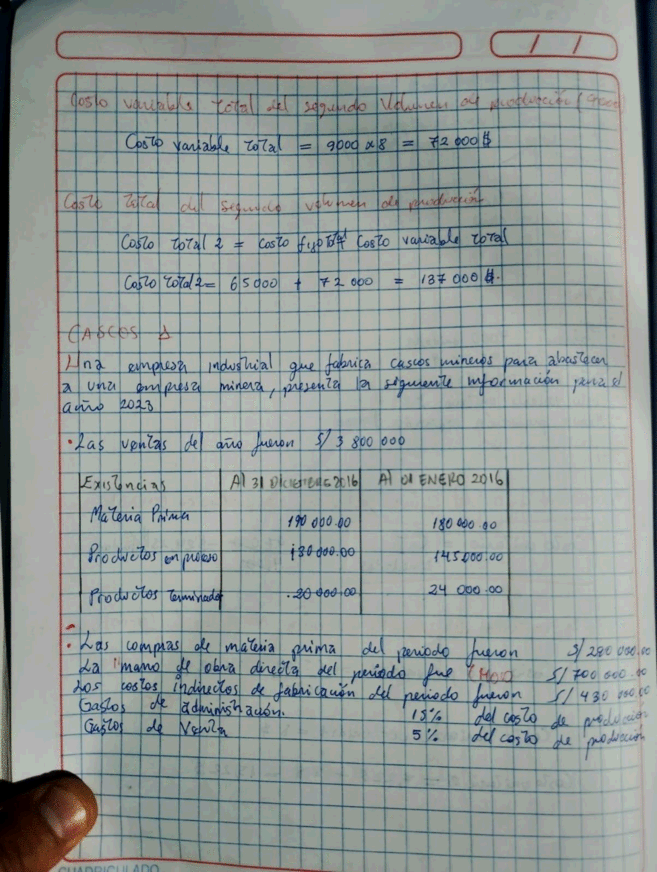 / /
Costo variable total del segundo volumen de producción (9000)
Costo variable total = 9000 x 8 = 72 000 $
Costo total del segundo volumen de producción
Costo total 2 = costo fijo tot + costo variable total
Costo total 2 = 65000 + 72 000 = 137 000 $.
CASCOS Δ
Una empresa industrial que fabrica cascos mineros para abastecer
a una empresa minera, presenta la siguiente información para el
año 2023
• Las ventas del año fueron S/ 3 800 000
Existencias Al 31 DICIEMBRE 2016 Al 01 ENERO 2016
Materia Prima 190 000.00 180 000.00
Productos en proceso 130 000.00 145 000.00
Productos Terminados 20 000.00 24 000.00
• Las compras de materia prima del periodo fueron S/ 280 000.00
La mano de obra directa del periodo fue (MOD S/ 700 000.00
Los costos indirectos de fabricación del periodo fueron S/ 430 000.00
Gastos de administración. 15% del costo de producción
Gastos de Venta 5% del costo de producción
CUADRICULADO